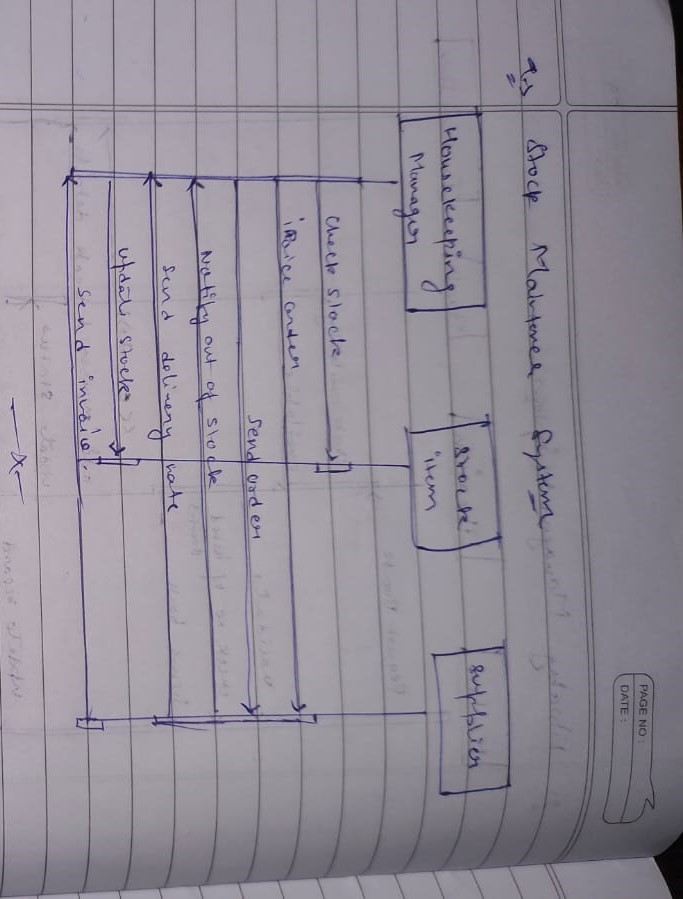 PAGE NO :
DATE :
Stock Maintenance System
Housekeeping
Manager
Stock
item
Supplier
Check Stock
Raise order
Send order
Notify out of stock
Send delivery note
update stock
Send invoice